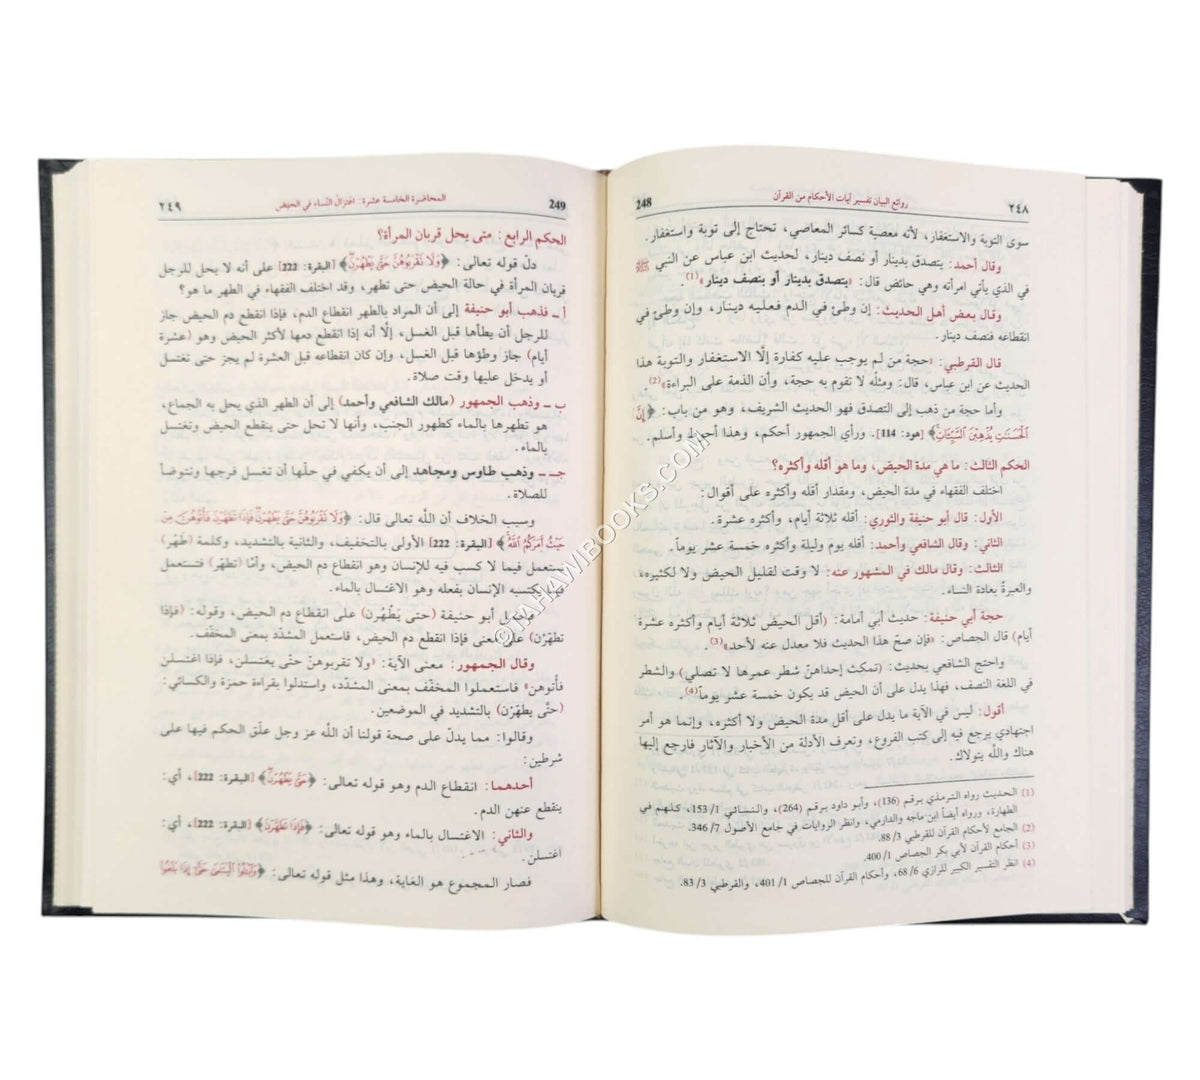 ٢٤٨ روائع البيان تفسير آيات الأحكام من القرآن 248
سوى التوبة والاستغفار، لأنه معصية كسائر المعاصي، تحتاج إلى توبة واستغفار.
وقال أحمد: يتصدق بدينار أو نصف دينار، لحديث ابن عباس عن النبي ﷺ
في الذي يأتي امرأته وهي حائض قال: «يتصدق بدينار أو بنصف دينار»(1).
وقال بعض أهل الحديث: إن وطئ في الدم فعليه دينار، وإن وطئ في
انقطاعه فنصف دينار.
قال القرطبي: «حجة من لم يوجب عليه كفارة إلّا الاستغفار والتوبة هذا
الحديث عن ابن عباس، قال: ومثلُه لا تقوم به حجة، وأن الذمة على البراءة»(2).
وأما حجة من ذهب إلى التصدق فهو الحديث الشريف، وهو من باب: ﴿إِنَّ
الْحَسَنَٰتِ يُذْهِبْنَ السَّيِّئَاتِ﴾ [هود: 114]. ورأي الجمهور أحكم، وهذا أحوط وأسلم.
الحكم الثالث: ما هي مدة الحيض، وما هو أقله وأكثره؟
اختلف الفقهاء في مدة الحيض، ومقدار أقله وأكثره على أقوال:
الأول: قال أبو حنيفة والثوري: أقله ثلاثة أيام، وأكثره عشرة.
الثاني: وقال الشافعي وأحمد: أقله يوم وليلة وأكثره خمسة عشر يوماً.
الثالث: وقال مالك في المشهور عنه: لا وقت لقليل الحيض ولا لكثيره،
والعبرةُ بعادة النساء.
حجة أبي حنيفة: حديث أبي أمامة: (أقل الحيض ثلاثة أيام وأكثره عشرة
أيام) قال الجصاص: «فإن صحّ هذا الحديث فلا معدل عنه لأحد»(3).
واحتج الشافعي بحديث: (تمكث إحداهنّ شطر عمرها لا تصلي) والشطر
في اللغة النصف، فهذا يدل على أن الحيض قد يكون خمسة عشر يوماً(4).
أقول: ليس في الآية ما يدل على أقل مدة الحيض ولا أكثره، وإنما هو أمر
اجتهادي يرجع فيه إلى كتب الفروع، وتعرف الأدلة من الأخبار والآثار فارجع إليها
هناك واللَّه يتولاك.
(1) الحديث رواه الترمذي برقم (136)، وأبو داود برقم (264)، والنسائي 1/ 153، كلهم في
الطهارة، ورواه أيضاً ابن ماجه والدارمي، وانظر الروايات في جامع الأصول 7/ 346.
(2) الجامع لأحكام القرآن للقرطبي 3/ 88.
(3) أحكام القرآن لأبي بكر الجصاص 1/ 400.
(4) انظر التفسير الكبير للرازي 6/ 68، وأحكام القرآن للجصاص 1/ 401، والقرطبي 3/ 83.
249 المحاضرة الخامسة عشرة: اعتزال النساء في الحيض ٢٤٩
الحكم الرابع: متى يحل قربان المرأة؟
دلّ قوله تعالى: ﴿وَلَا تَقْرَبُوهُنَّ حَتَّىٰ يَطْهُرْنَ﴾ [البقرة: 222] على أنه لا يحل للرجل
قربان المرأة في حالة الحيض حتى تطهر، وقد اختلف الفقهاء في الطهر ما هو؟
أ ـ فذهب أبو حنيفة إلى أن المراد بالطهر انقطاع الدم، فإذا انقطع دم الحيض جاز
للرجل أن يطأها قبل الغسل، إلّا أنه إذا انقطع دمها لأكثر الحيض وهو (عشرة
أيام) جاز وطؤها قبل الغسل، وإن كان انقطاعه قبل العشرة لم يجز حتى تغتسل
أو يدخل عليها وقت صلاة.
ب ـ وذهب الجمهور (مالك الشافعي وأحمد) إلى أن الطهر الذي يحل به الجماع،
هو تطهرها بالماء كطهور الجنب، وأنها لا تحل حتى ينقطع الحيض وتغتسل
بالماء.
جـ ـ وذهب طاوس ومجاهد إلى أن يكفي في حلّها أن تغسل فرجها وتتوضأ
للصلاة.
وسبب الخلاف أن اللَّه تعالى قال: ﴿وَلَا تَقْرَبُوهُنَّ حَتَّىٰ يَطْهُرْنَ فَإِذَا تَطَهَّرْنَ فَأْتُوهُنَّ مِنْ
حَيْثُ أَمَرَكُمُ اللَّهُ﴾ [البقرة: 222] الأولى بالتخفيف، والثانية بالتشديد، وكلمة (طَهُر)
يستعمل فيما لا كسب فيه للإنسان وهو انقطاع دم الحيض، وأمّا (تطهّر) فتستعمل
فيما يكتسبه الإنسان بفعله وهو الاغتسال بالماء.
فحمل أبو حنيفة (حتى يَطْهُرن) على انقطاع دم الحيض، وقوله: (فإذا
تطهّرن) على معنى فإذا انقطع دم الحيض، فاستعمل المشدّد بمعنى المخفّف.
وقال الجمهور: معنى الآية: «ولا تقربوهنّ حتّى يغتسلن، فإذا اغتسلن
فأتوهن» فاستعملوا المخفّف بمعنى المشدّد، واستدلوا بقراءة حمزة والكسائي:
(حتّى يطهّرن) بالتشديد في الموضعين.
وقالوا: مما يدلّ على صحة قولنا أن اللَّه عز وجل علّق الحكم فيها على
شرطين:
أحدهما: انقطاع الدم وهو قوله تعالى: ﴿حَتَّىٰ يَطْهُرْنَ﴾ [البقرة: 222]، أي:
ينقطع عنهن الدم.
والثاني: الاغتسال بالماء وهو قوله تعالى: ﴿فَإِذَا تَطَهَّرْنَ﴾ [البقرة: 222]، أي:
اغتسلن.
فصار المجموع هو الغاية، وهذا مثل قوله تعالى: ﴿وَابْتَلُوا الْيَتَامَىٰ حَتَّىٰ إِذَا بَلَغُوا
© TAHAWIBOOKS.COM